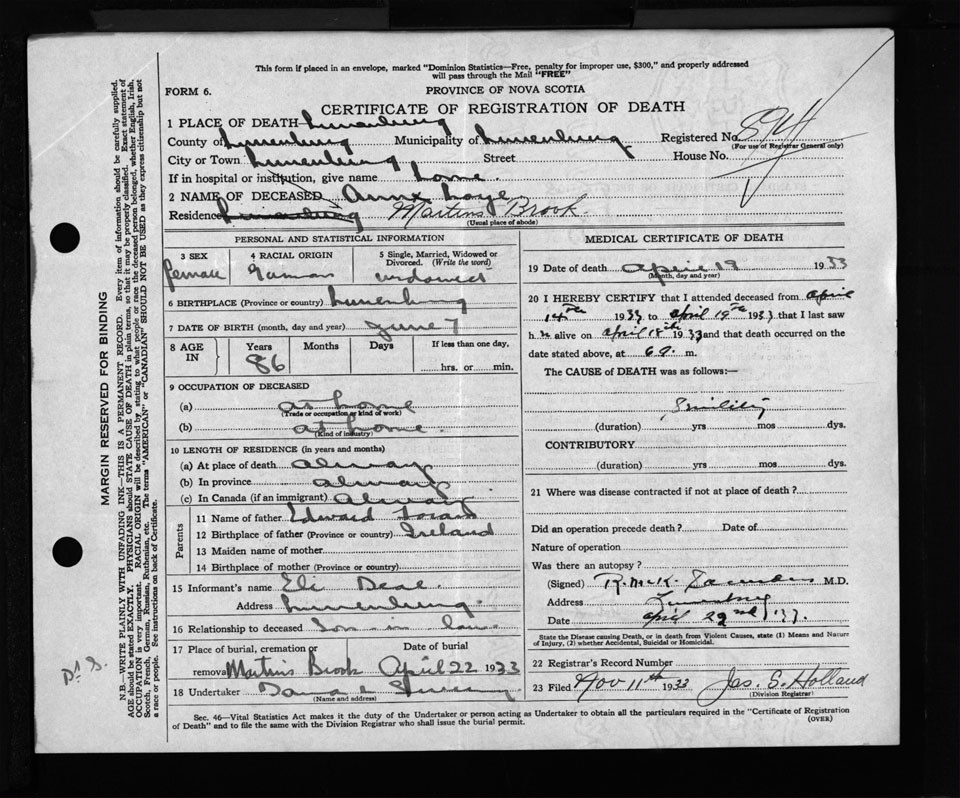 This form if placed in an envelope, marked "Dominion Statistics—Free, penalty for improper use, $300," and properly addressed
will pass through the Mail "FREE"
FORM 6.
PROVINCE OF NOVA SCOTIA
CERTIFICATE OF REGISTRATION OF DEATH
1 PLACE OF DEATH Lunenburg
County of Lunenburg Municipality of Lunenburg Registered No. 894
(For use of Registrar General only)
City or Town Lunenburg, Street House No.
If in hospital or institution, give name home
2 NAME OF DECEASED Annx
Residence Lunenburg Martins Brook
(Usual place of abode)
PERSONAL AND STATISTICAL INFORMATION
3 SEX 4 RACIAL ORIGIN 5 Single, Married, Widowed or
Divorced. (Write the word)
female German widowed
6 BIRTHPLACE (Province or country) Lunenburg
7 DATE OF BIRTH (month, day and year) June 7
8 AGE IN Years Months Days If less than one day,
86 hrs. or min.
9 OCCUPATION OF DECEASED
(a) at home
(Trade or occupation or kind of work)
(b) at home.
(Kind of industry)
10 LENGTH OF RESIDENCE (in years and months)
(a) At place of death always
(b) In province always
(c) In Canada (if an immigrant) always
Parents
11 Name of father Edward
12 Birthplace of father (Province or country) Ireland
13 Maiden name of mother
14 Birthplace of mother (Province or country)
15 Informant's name Eli Deal
Address Lunenburg.
16 Relationship to deceased Son in law
17 Place of burial, cremation or Date of burial
removal Martins Brook April 22 1933
18 Undertaker
(Name and address)
MEDICAL CERTIFICATE OF DEATH
19 Date of death April 19 1933
(Month, day and year)
20 I HEREBY CERTIFY that I attended deceased from April
14th 1933 to April 19th 1933 that I last saw
h alive on April 18th 1933 and that death occurred on
date stated above, at 6 a. m.
The CAUSE of DEATH was as follows:—
Senility
(duration) yrs mos dys.
CONTRIBUTORY
(duration) yrs mos dys.
21 Where was disease contracted if not at place of death?
Did an operation precede death? Date of
Nature of operation
Was there an autopsy?
(Signed) M.D.
Address Lunenburg
Date April 22nd 1933.
State the Disease causing Death, or in death from Violent Causes, state (1) Means and Nature
of Injury, (2) whether Accidental, Suicidal or Homicidal.
22 Registrar's Record Number
23 Filed Nov 11th 1933 Jas. S. Holland
(Division Registrar)
Sec. 46—Vital Statistics Act makes it the duty of the Undertaker or person acting as Undertaker to obtain all the particulars required in the "Certificate of Registration
of Death" and to file the same with the Division Registrar who shall issue the burial permit. (OVER)
MARGIN RESERVED FOR BINDING
N.B.—WRITE PLAINLY WITH UNFADING INK—THIS IS A PERMANENT RECORD. Every item of information should be carefully supplied.
AGE should be stated EXACTLY. PHYSICIANS should STATE CAUSE OF DEATH in plain terms, so that it may be properly classified. Exact statement of
OCCUPATION is very important. RACIAL ORIGIN will be described by stating to what people or race the deceased person belonged, whether English, Irish,
Scotch, French, German, Russian, Ruthenian, etc. The terms "AMERICAN" or "CANADIAN" SHOULD NOT BE USED as they express citizenship but not
a race or people. See instructions on back of Certificate.